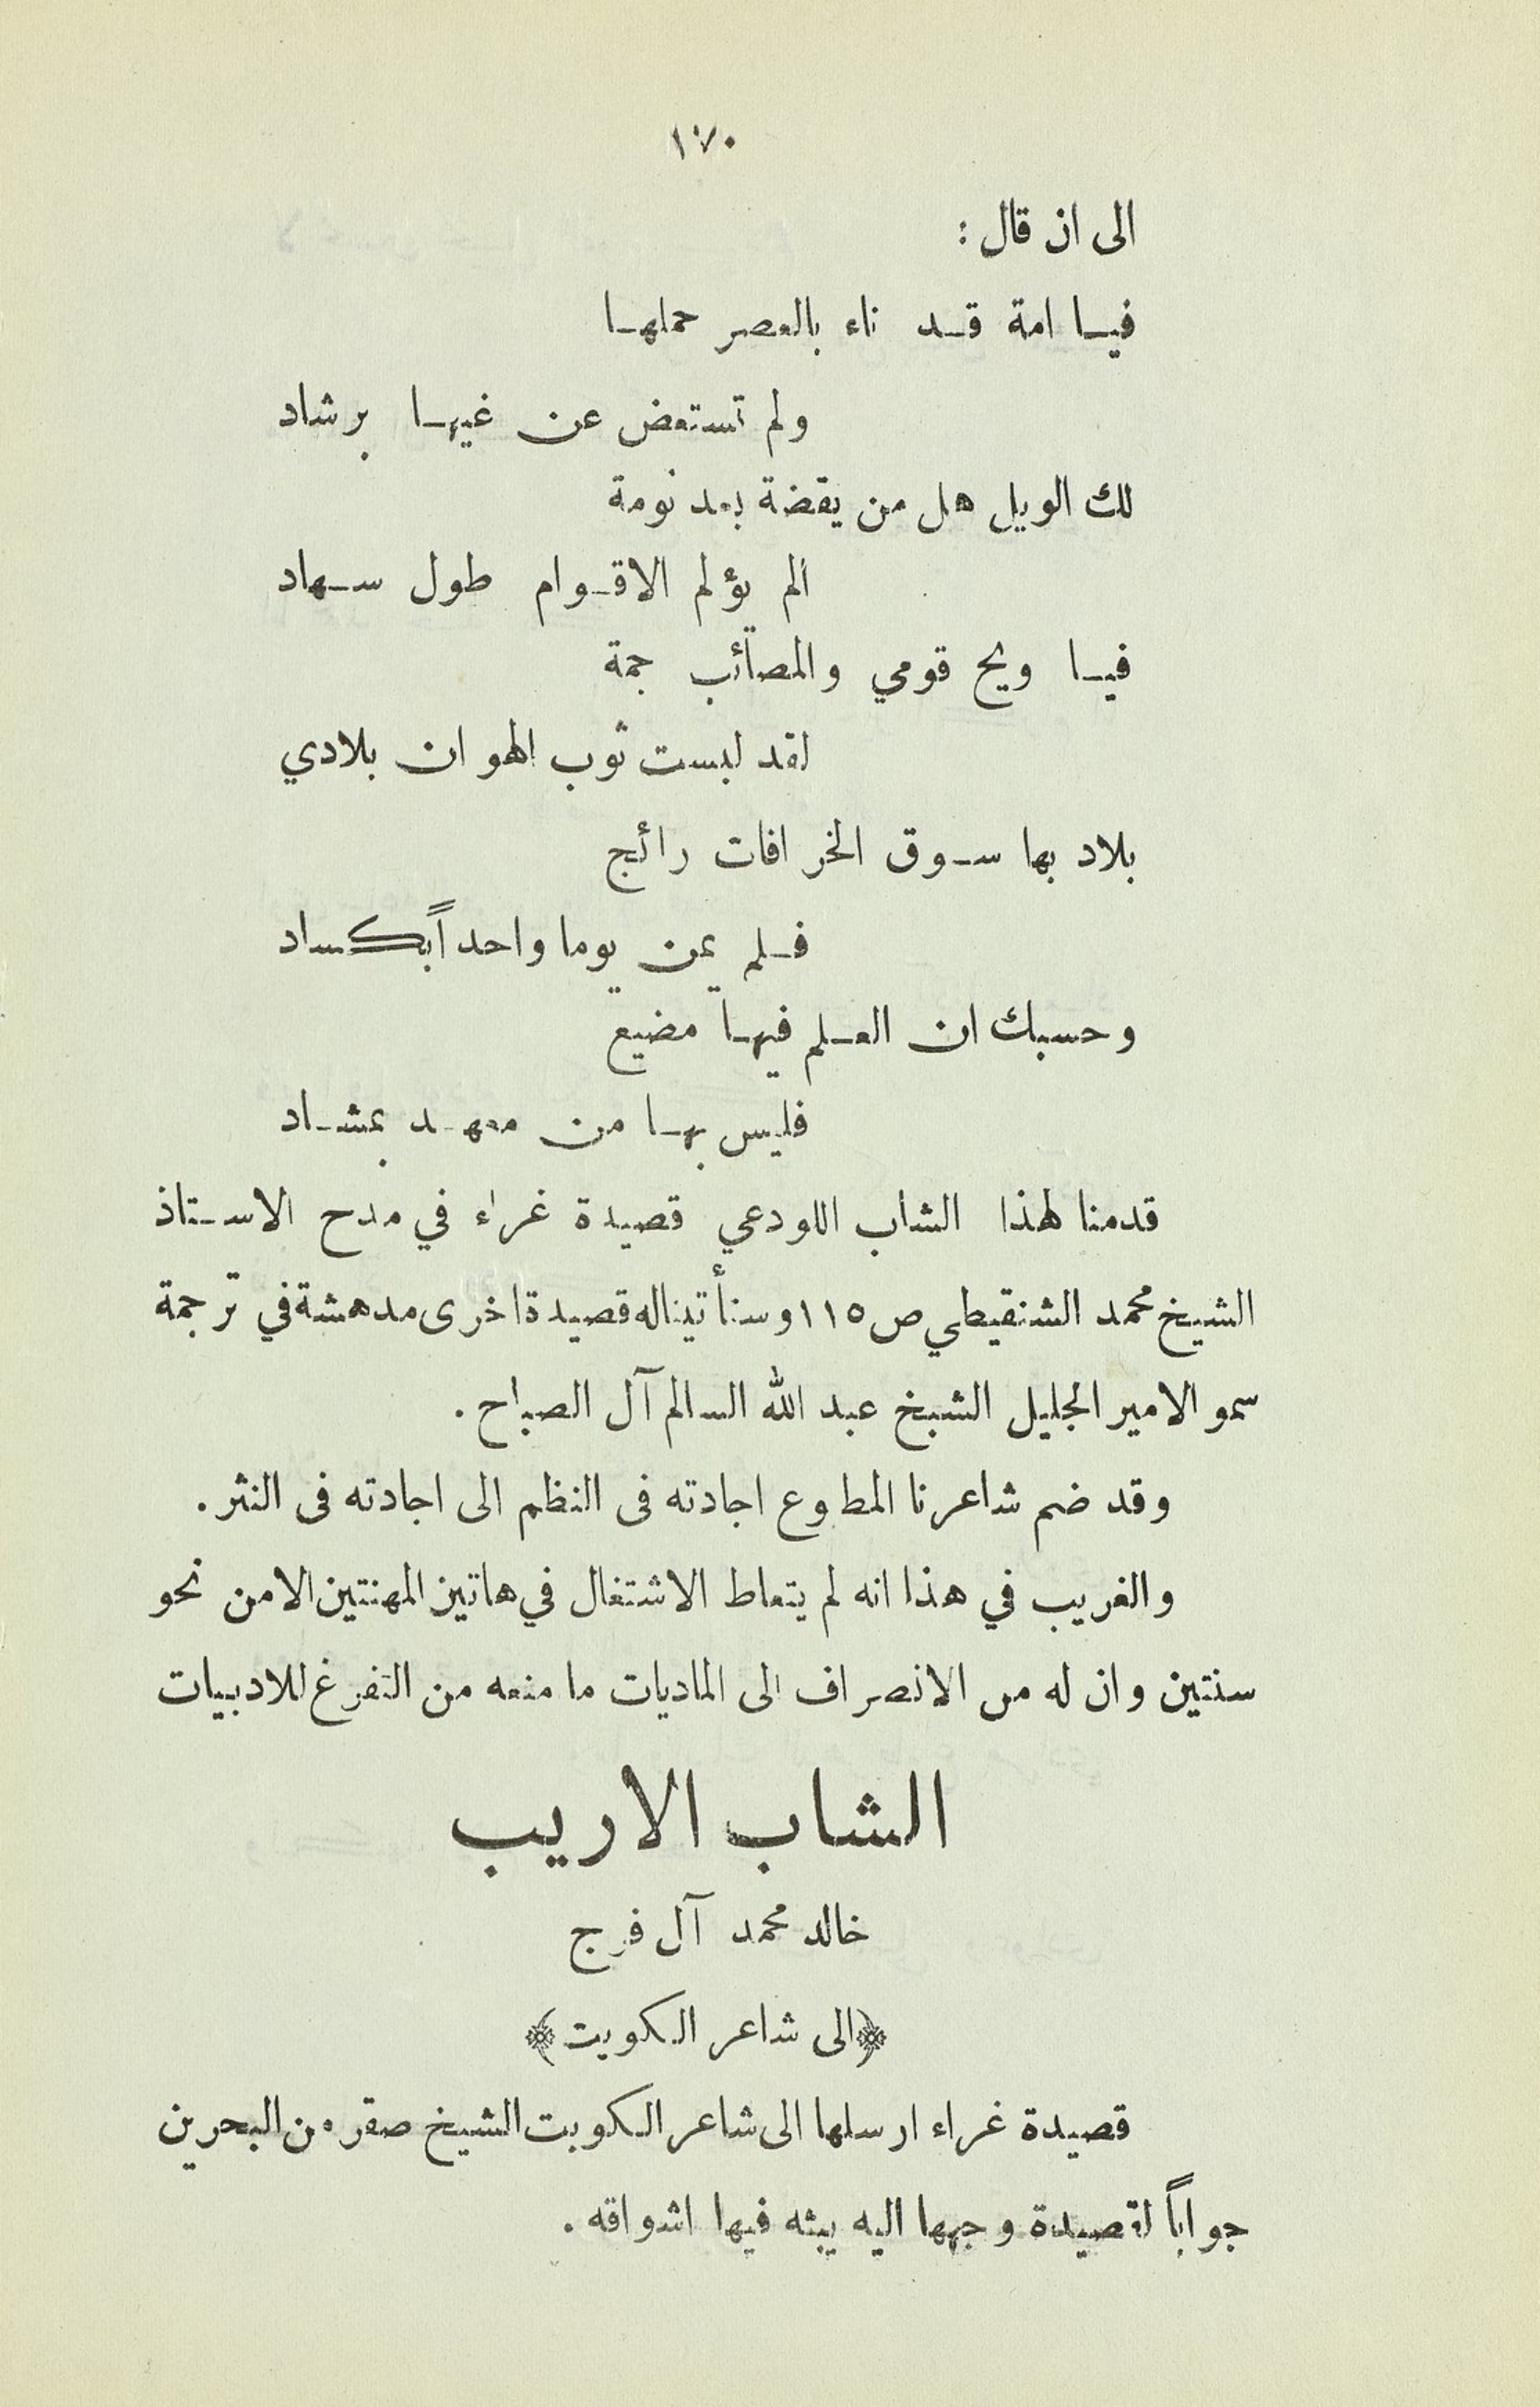 ١٧٠
الى ان قال :
فيا امة قد ناء بالعصر حملها
ولم تستعض عن غيها برشاد
لك الويل هل من يقضة بعد نومة
الم يؤلم الاقوام طول سهاد
فيا ويح قومي والمصائب جمة
لقد لبست ثوب الهوان بلادي
بلاد بها سوق الخرافات رائج
فلم يمن يوما واحداً بكساد
وحسبك ان العلم فيها مضيع
فليس بها من معهد بمشاد
قدمنا لهذا الشاب اللودعي قصيدة غراء في مدح الاستاذ
الشيخ محمد الشنقيطي ص ١١٥ وسنأتينا له قصيدة اخرى مدهشة في ترجمة
سمو الامير الجليل الشيخ عبد الله السالم آل الصباح .
وقد ضم شاعرنا المطوع اجادته فى النظم الى اجادته فى النثر .
والغريب في هذا انه لم يتعاط الاشتغال في هاتين المهنتين الا من نحو
سنتين وان له من الانصراف الى الماديات ما منعه من التفرغ للادبيات
الشاب الاريب
خالد محمد آل فرج
﴿الى شاعر الكويت﴾
قصيدة غراء ارسلها الى شاعر الكويت الشيخ صقر من البحرين
جواباً لقصيدة وجهها اليه يبثه فيها اشواقه .